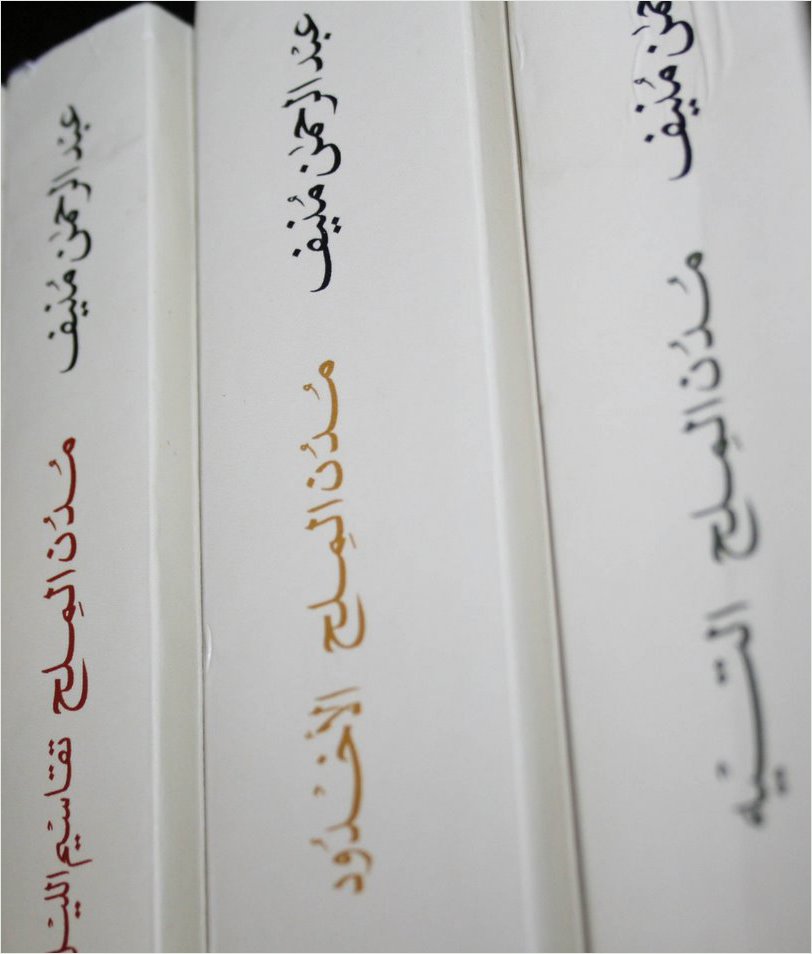 عبد الرحمن مُنيف مُدُن المِلح تقاسيم الليل
عبد الرحمن مُنيف مُدُن المِلح الأخْدُود
مُنيف مُدُن المِلح التيه